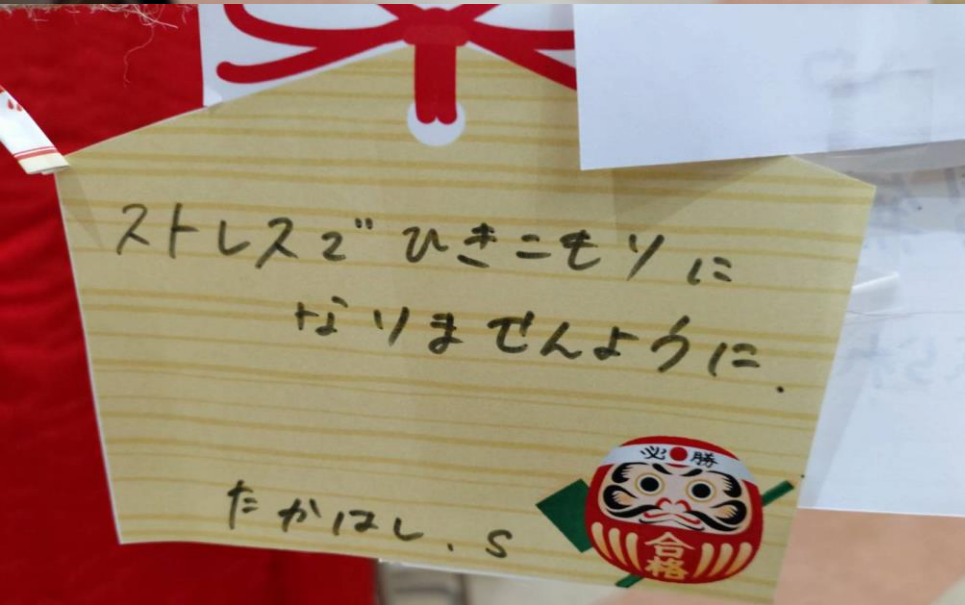 ストレスでひきこもりに
なりませんように.
たかはし.S
必勝
合格